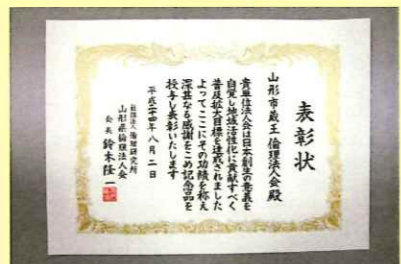 表彰状
山形市蔵王倫理法人会殿
貴単位法人会は日本創生の意義を
自覚し地域活性化に貢献すべく
普及拡大目標を達成されました
よってここにその功績を称え
深甚なる感謝をこめ記念品を
授与し表彰いたします
平成二十四年八月二日
社団法人 倫理研究所
山形県倫理法人会
会長 鈴木隆一